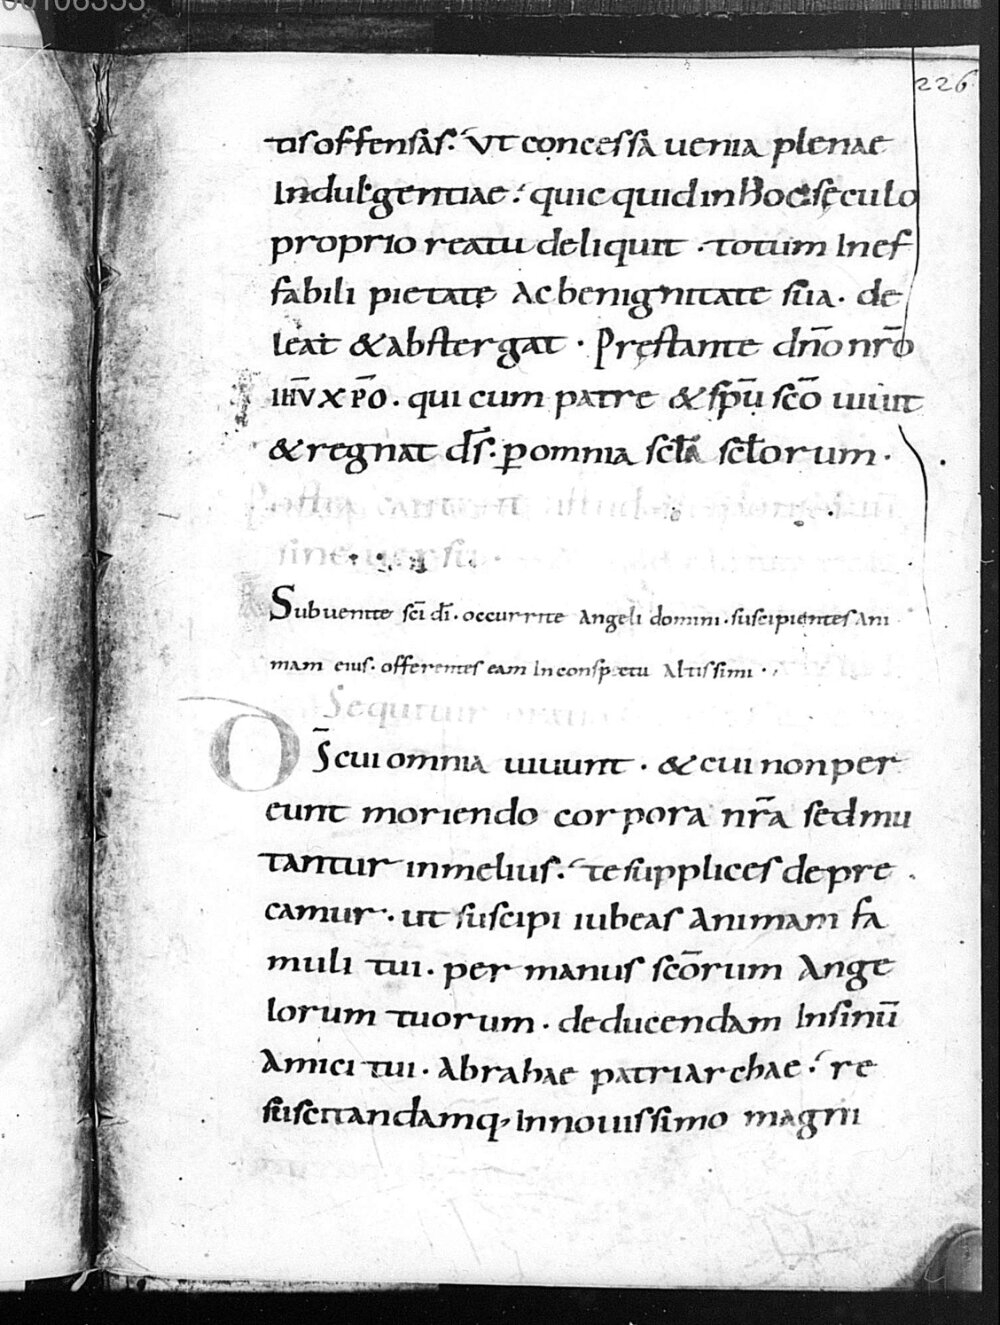 00106353
226
tis offensas. Ut concessa uenia plenae
Indulgentiae. quicquid in hoc sęculo
proprio reatu deliquit. totum Inef
fabili pietate Ac benignitate sua. de
leat & abstergat. Pręstante dño nr̃o
ιħū xp̄o. qui cum patre & sp̄ū sc̄o uiuit
& regnat d̄s. ꝑ omnia sc̄la sc̄lorum.
Postea
sine
Subuenite sc̄i d̄i. occurrite Angeli domini. suscipientes Ani
mam eius. offerentes eam In conspectu Altissimi.
Sequitur
D̄s cui omnia uiuunt. & cui non per
eunt moriendo corpora nr̄a sed mu
tantur in melius. te supplices depre
camur. ut suscipi iubeas Animam fa
muli tui. per manus sc̄orum Ange
lorum tuorum. deducendam In sinū
Amici tui. Abrahae patriarchae. re
suscitandamq, In nouissimo magni